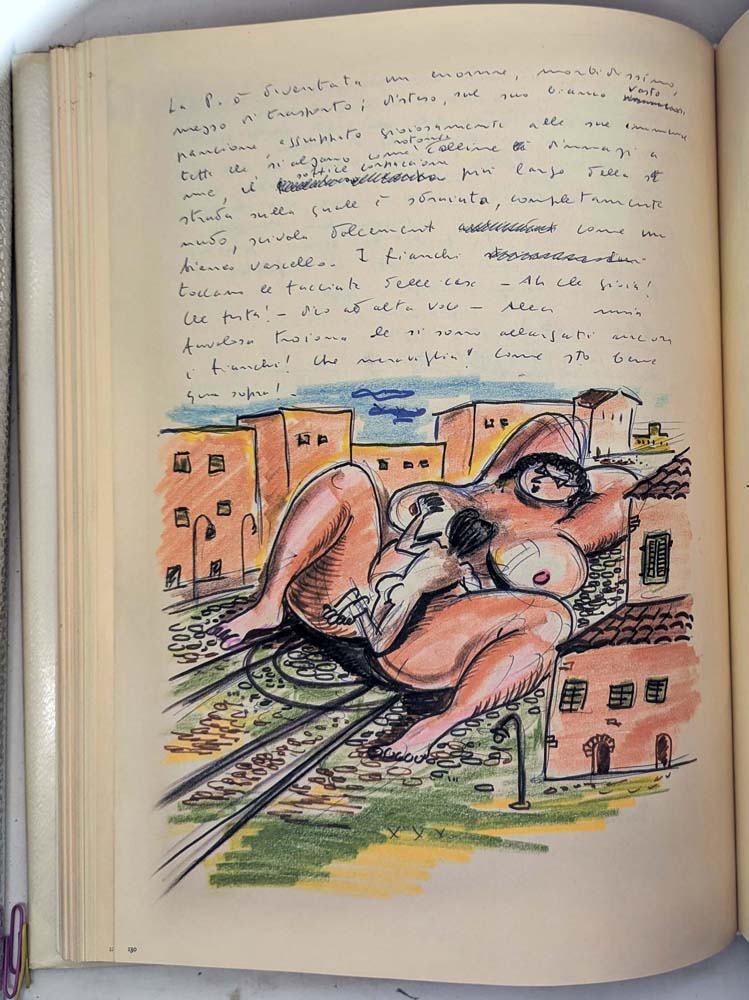 La P. è diventata un enorme, morbidissimo,
mezzo di trasporto; disteso, sul suo bianco vasto
pancione, aggrappato gioiosamente alle sue immense
tette che si alzano come rotonde colline dinnanzi a
me, il soffice più largo della
strada sulla quale è sdraiata, completamente
nudo, scivola dolcemente come un
bianco vascello. I fianchi
toccano le facciate delle case – Ah che gioia!
Che festa! – dico ad alta voce – Alla mia
favolosa troiona le si sono allargati ancora
i fianchi! Che meraviglia! Come sto bene
qua sopra! –
X X X
130